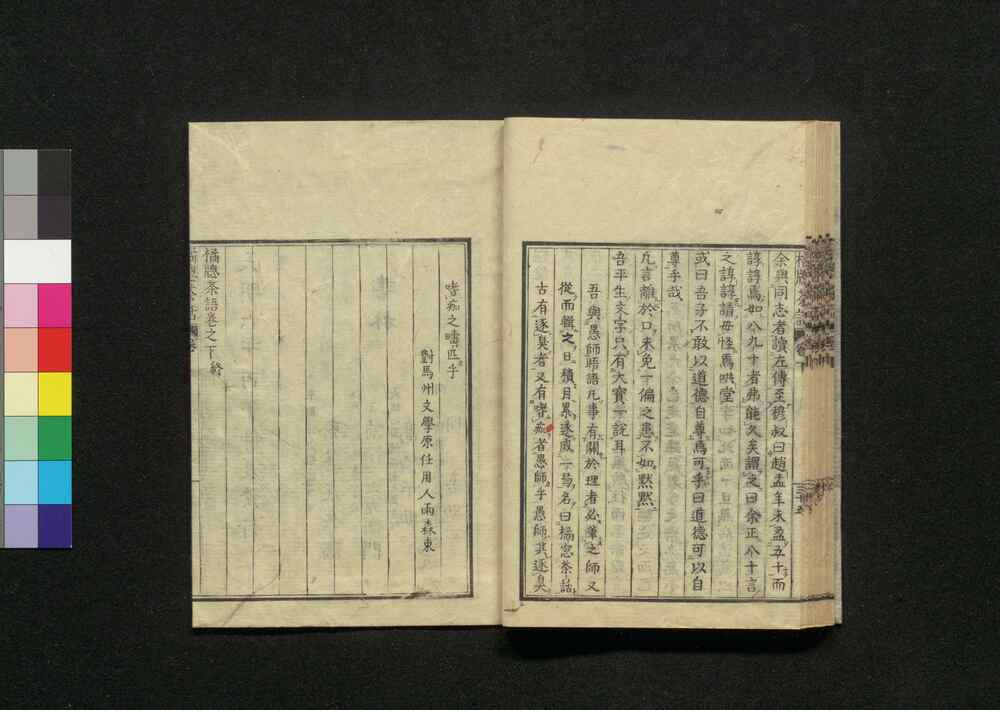 余與同志者讀左傳至穆叔曰趙孟年未盈五十而
諄諄焉如八九十者弗能久矣謂之曰余正八十言
之諄諄請毋怪焉哄堂
或曰吾子不敢以道德自尊焉可乎曰道德可以自
尊乎哉
凡言離於口未免一偏之患不如默默
吾平生文字只有大寶一說耳
吾與愚師晤語凡事有關於理者必筆之師又
從而輯之日積月累遂成一局名曰橘窓茶話
古有逐臭者又有嗜痂者愚師乎愚師其逐臭
嗜痂之儔匹乎
對馬州文學原任用人雨森東
橘牕茶語卷之下終